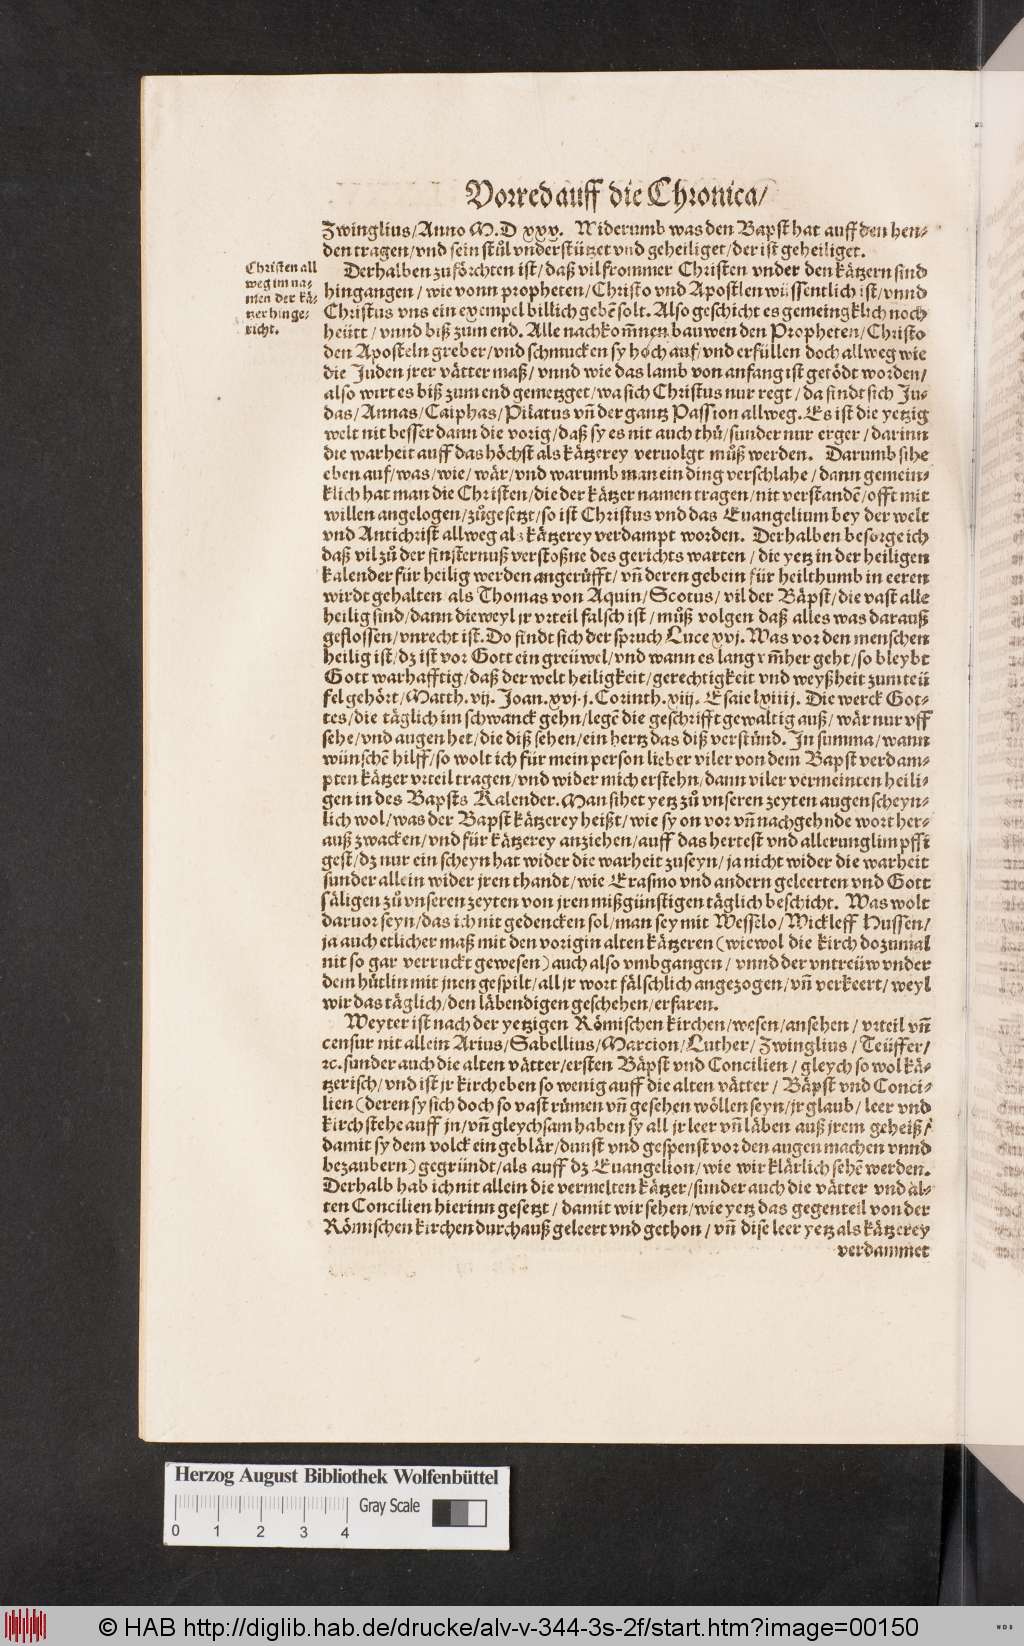 Vorred auff die Chronica/
Zwinglius/Anno M.D xxv. Widerumb was den Bapst hat auff den hen-
den tragen/vnd sein stůl vnderstützet vnd geheiliget/der ist geheiliget.
Christen all
weg im na-
men der kä-
tzer hinge-
richt.
Derhalben zu förchten ist/daß vil frommer Christen vnder den kätzern sind
hingangen/wie vonn propheten/Christo vnd Apostlen wüssentlich ist/vnnd
Christus vns ein exempel billich gebē solt. Also geschicht es gemeingklich noch
heütt/vnnd biß zum end. Alle nachkom̄nen bauwen den Propheten/Christo
den Aposteln greber/vnd schmucken sy hoch auf/vnd erfüllen doch allweg wie
die Juden jrer vätter maß/vnnd wie das lamb von anfang ist getödt worden/
also wirt es biß zum end gemetzget/wa sich Christus nur regt/da findt sich Ju-
das/Annas/Caiphas/Pilatus vn̄ der gantz Passion allweg. Es ist die yetzig
welt nit besser dann die vorig/daß sy es nit auch thů/sunder nur erger/darinn
die warheit auff das höchst als kätzerey veruolgt můß werden. Darumb sihe
eben auf/was/wie/wär/vnd warumb man ein ding verschlahe/dann gemein-
klich hat man die Christen/die der kätzer namen tragen/nit verstandē/offt mit
willen angelogen/zůgesetzt/so ist Christus vnd das Euangelium bey der welt
vnd Antichrist allweg als kätzerey verdampt worden. Derhalben besorge ich
daß vil zů der finsternuß verstoßne des gerichts warten/die yetz in der heiligen
kalender für heilig werden angerůfft/vn̄ deren gebein für heilthumb in eeren
wirdt gehalten als Thomas von Aquin/Scotus/vil der Bäpst/die vast alle
heilig sind/dann dieweyl jr vrteil falsch ist/můß volgen daß alles was darauß
geflossen/vnrecht ist. Do findt sich der spruch Luce xvj. Was vor den menschen
heilig ist/dz ist vor Gott ein greüwel/vnd wann es lang vm̄her geht/so bleybt
Gott warhafftig/daß der welt heiligkeit/gerechtigkeit vnd weyßheit zum teü
fel gehört/Matth. vij. Joan. xvj. j. Corinth. xiij. Esaie lviiij. Die werck Got-
tes/die täglich im schwanck gehn/legē die geschrifft gewaltig auß/wär nur vff
sehe/vnd augen het/die diß sehen/ein hertz das diß verstünd. In summa/wann
wünschen hilff/so wolt ich für mein person lieber viler von dem Bapst verdam-
pten kätzer vrteil tragen/vnd wider mich erstehn/dann viler vermeinten heili-
gen in des Bapsts Kalender. Man sihet yetz zů vnseren zeyten augenscheyn-
lich wol/was der Bapst kätzerey heißt/wie sy on vor vn̄ nachgehnde wort her-
auß zwacken/vnd für kätzerey anziehen/auff das hertest vnd allerunglimpffi
gest/dz nur ein scheyn hat wider die warheit zuseyn/ja nicht wider die warheit
sunder allein wider jren thandt/wie Erasmo vnd andern geleerten vnd Gott
säligen zů vnseren zeyten von jren mißgünstigen täglich beschicht. Was wolt
daruor seyn/das ich nit gedencken sol/man sey mit Wesselo/Wickleff Hussen/
ja auch etlicher maß mit den vorigin alten kätzeren (wiewol die kirch dozumal
nit so gar verruckt gewesen) auch also vmbgangen/vnnd der vntreüw vnder
dem hütlin mit jnen gespilt/all jr wort fälschlich angezogen/vn̄ verkeert/weyl
wir das täglich/den läbendigen geschehen/erfaren.
Weyter ist nach der yetzigen Römischen kirchen/wesen/ansehen/vrteil vn̄
censur nit allein Arius/Sabellius/Marcion/Luther/Zwinglius/Teüffer/
ꝛc. sunder auch die alten vätter/ersten Bäpst vnd Concilien/gleych so wol kä-
tzerisch/vnd ist jr kirch eben so wenig auff die alten vätter/Bäpst vnd Conci-
lien (deren sy sich doch so vast rümen vn̄ gesehen wöllen seyn/jr glaub/leer vnd
kirch stehe auff jn/vn̄ gleychsam haben sy all jr leer vn̄ läben auß jrem geheiß/
damit sy dem volck ein geblär/dunst vnd gespenst vor den augen machen vnnd
bezaubern) gegründt/als auff dz Euangelion/wie wir klärlich sehē werden.
Derhalb hab ich nit allein die vermelten kätzer/sunder auch die vätter vnd äl-
ten Concilien hierinn gesetzt/damit wir sehen/wie yetz das gegenteil von der
Römischen kirchen durchauß geleert vnd gethon/vn̄ dise leer yetz als kätzerey
verdammet
Herzog August Bibliothek Wolfenbüttel
Gray Scale
0 1 2 3 4
© HAB http://diglib.hab.de/drucke/alv-v-344-3s-2f/start.htm?image=00150